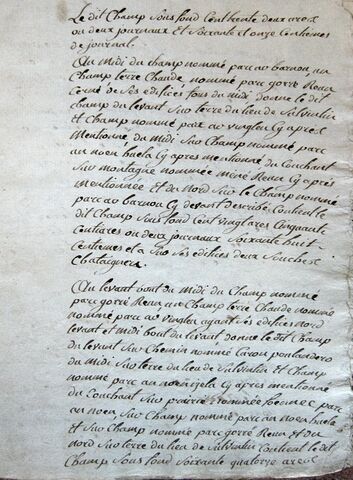 Le dit Champ sous fond Cent trente deux ares
ou deux journaux et soixante et onze Centiemes
de journal.
Au midi du champ nommé parc ar barnou, un
Champ terre Chaude nommé parc gorré Reun
Cerné de ses édifices fors du midi donne le dit
champ du levant Sur terre du lieu de Salvintin
Et Champ nommé parc ar vinglen Cy après
Mentionné, du midi Sur Champ nommé parc
an noen huela Cy après mentionné du Couchant
Sur montagne nommée méné Reun Cy après
mentionnée Et du Nord Sur le Champ nommé
parc ar barnou Cy devant describé Contient le
dit Champ Sous fond Cent vingt ares Cinquante
Centiares ou deux journaux Soixante huit
Centiemes et a Sur Ses édifices deux Souches
Chataigners.
Au levant bout du midi du Champ nommé
parc gorré Reun, un Champ terre Chaude nommé
nommé parc ar vinglen ayant Ses édifices Nord
levant et midi bout du levant donne le dit Champ
du levant Sur Chemin nommé
du midi Sur terre du lieu de Salvintin Et Champ
nommé parc an noen izela Cy après mentionné
du Couchant Sur prairie nommée foennec parc
an noen, Sur Champ nommé parc an noen huela
Et Sur Champ nommé parc gorré Reun Et du
Nord Sur terre du lieu de Salvintin Contient le dit
Champ Sous fond Soixante quatorze ares